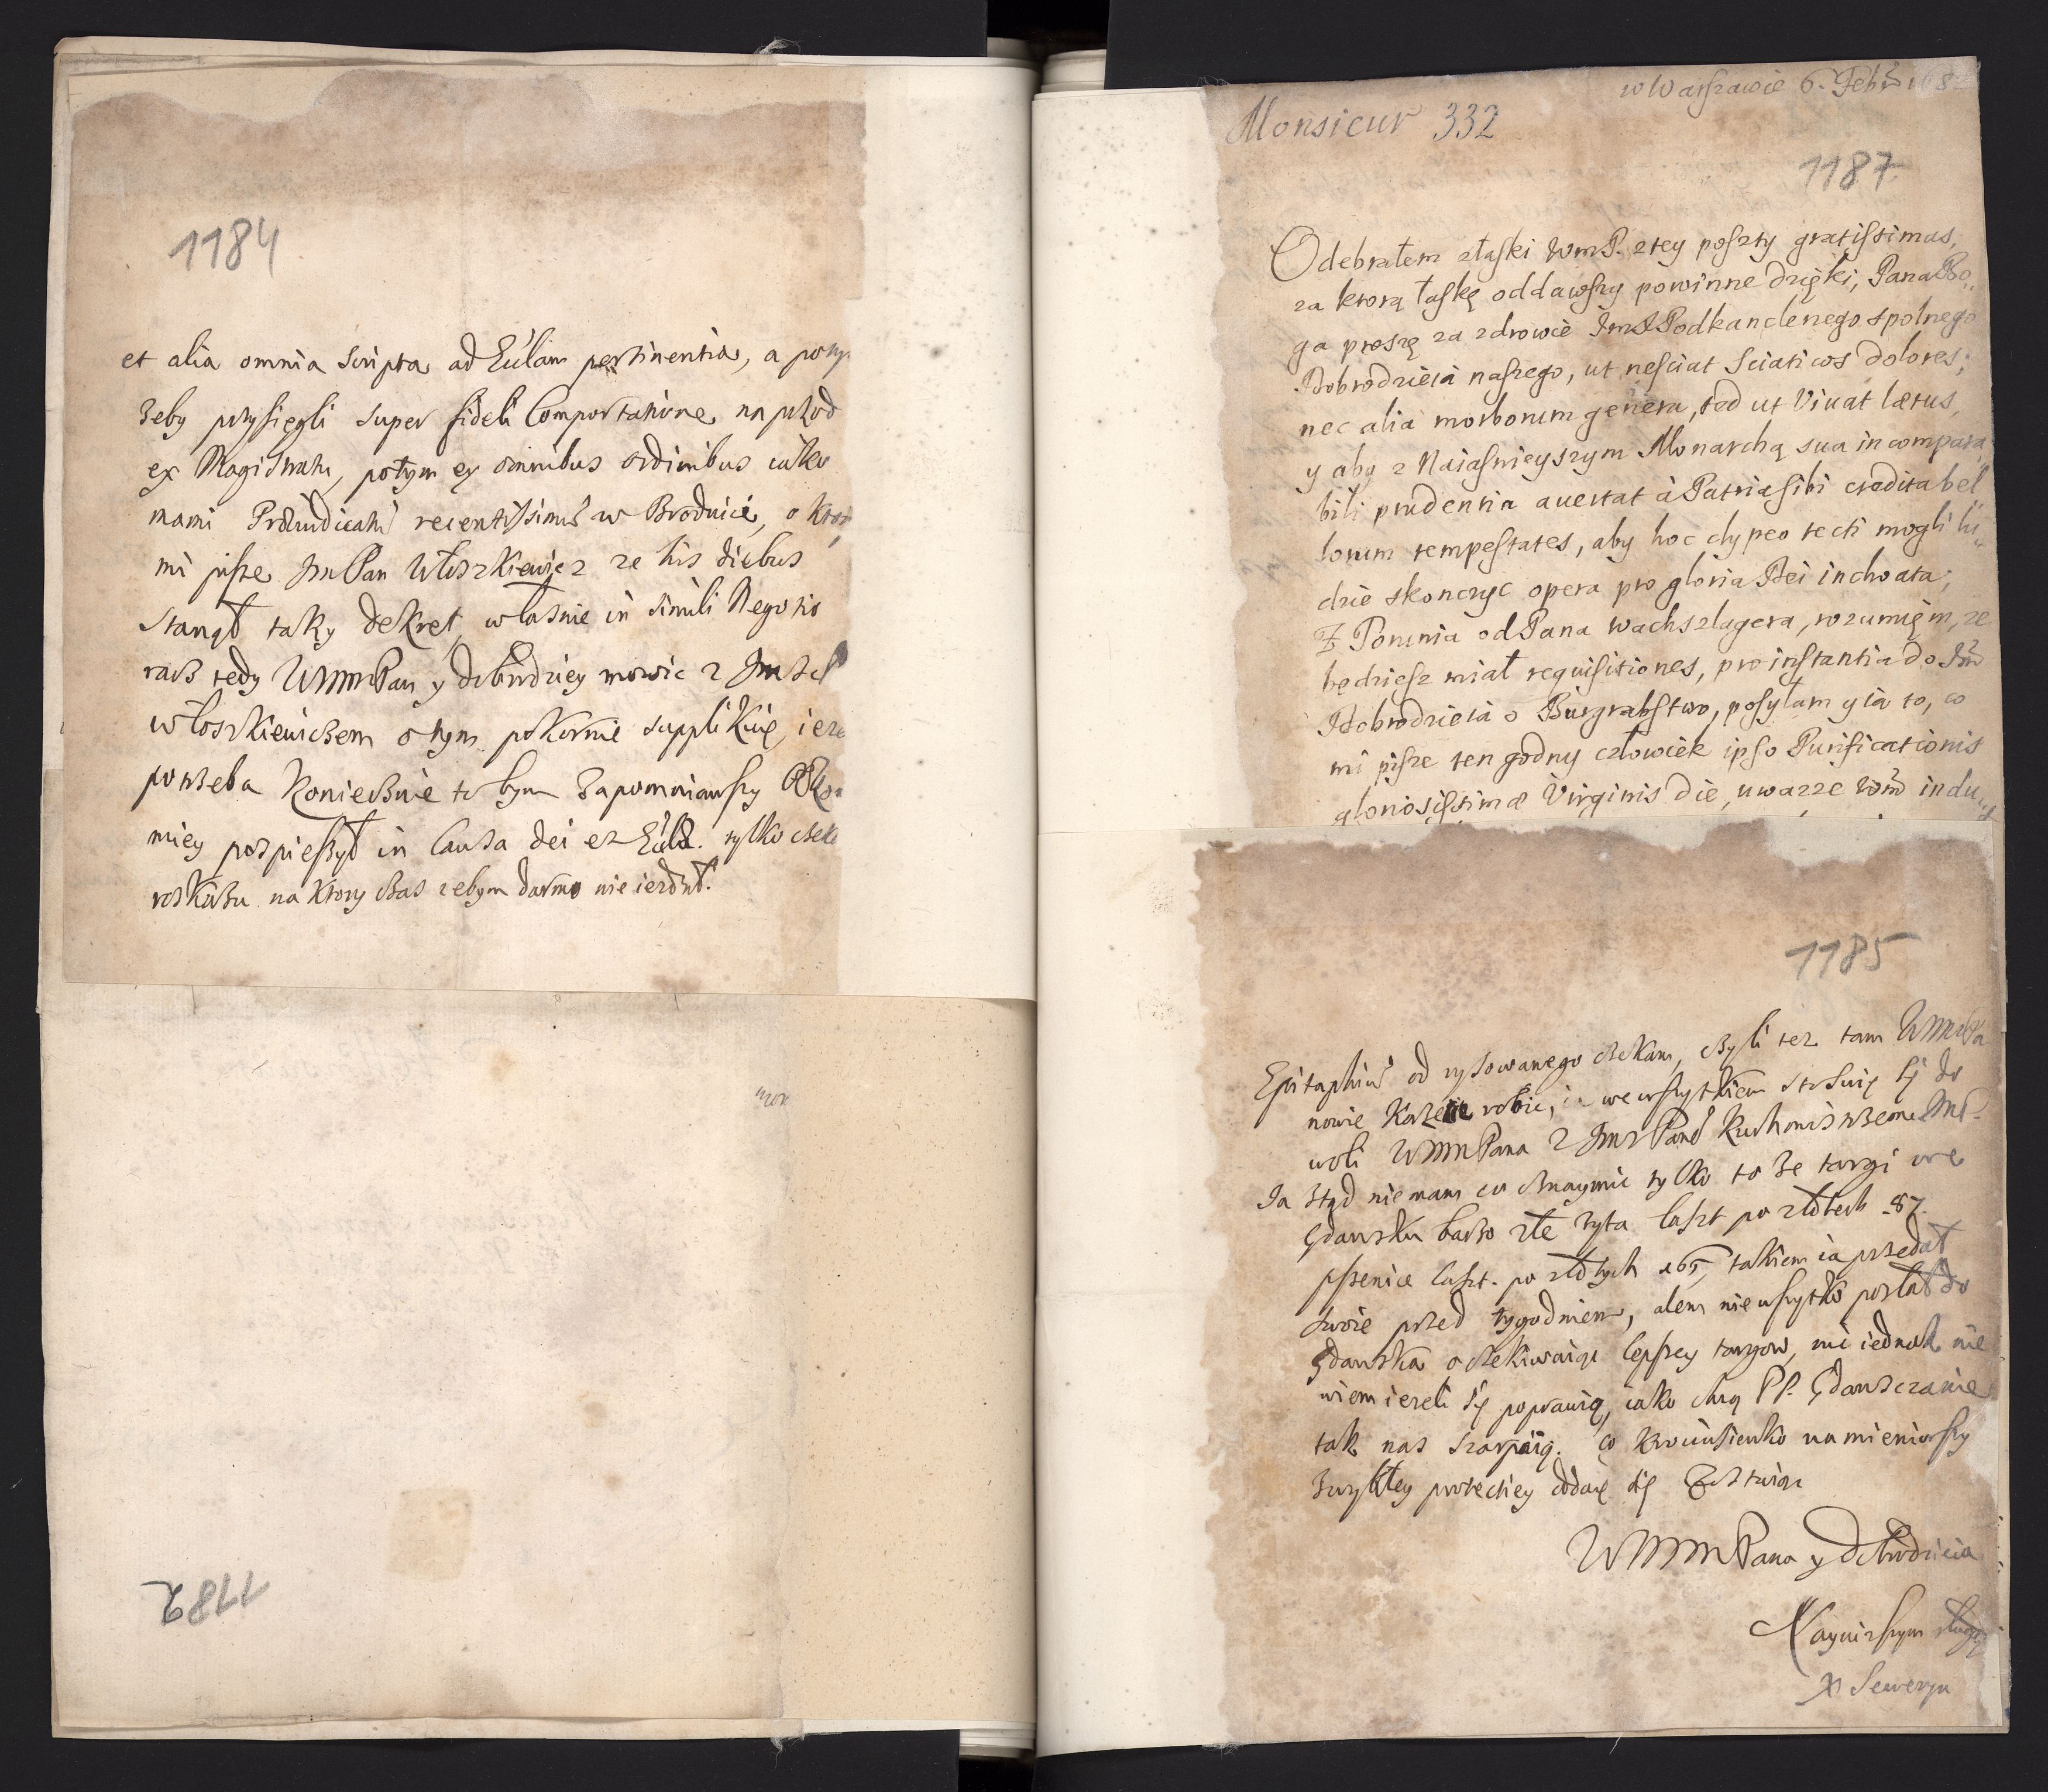 1184
et alia omnia scripta ad Eulam pertinentia, a potym
zeby przysięgli super fideli Comportatione, na przod
ex Magistratu, potym ex omnibus ordinibus iako
mami Præiudicatū recentissimū w Brodnicÿ, o ktor
mi pisze Jm Pan Włoszkiewicz ze his diebus
stanął taky dekret, własnie in simili Negotio
racz tedy WMM Pan y dobrodziey mowic z Jm
Włoszkiewiczem o tym pokornie supplikuię,
potrzeba koniecznie to bym zapomniawszy
miey pospieszył in Causa Dei et tylko czek
roskazu na ktory czas zebym darmo nie iezdził.
1182
w Warszawie 6. Febr 168
Monsieur 332
1187
Odebrałem złaski WmP. z tey poszty gratissimas,
za ktorą łaskę oddawszy powinne dzięki, Pana Bo„
ga proszę za zdrowie JmP Podkanclerzego spolnego
Dobrodzieia naszego, ut nesciat Sciaticos dolores,
nec alia morborum genera, sed ut Vivat lætus,
y aby z Naiasnieyszym Monarchą sua incompara
bili prudentia auertat à Patria sibi credita bel
lorum tempestates, aby hoc clypeo tecti mogli lu„
dzie skonczyc opera pro gloria Dei inchoata;
Z Torunia od Pana Wachszlagera, rozumięm, ze
będziesz miał requisitiones, pro instantia do Jm
Dobrodzieia o Burgrabstwo, posyłam y ia to, co
mi pisze ten godny człowiek ipso Purificationis
gloriosissimæ Virginis die, uwazze Wm in du„
1185
Epitaphiū od rysowanego czekam, czyli tez tam WMMPa
nowie kazecie robic, ia we wszytkiem stosuię się do
woli WMMPana z Jmsc Pane Kuchmistrzem JmP.
Ia ztąd nie mam co oznaymic tylko to ze targi we
Gdansku barzo złe zyta laszt po złotech .87.
pszenice laszt. po złotych 165, takiem ia przedał
swoie przed tygodniem, alem nie wszytko posłał do
Gdanska oczekiwaiąc lepszey targow, nic iednak nie
wiem iezeli się poprawią, iako chcą PP. Gdansczanie
tak nas szarpaią. Co krociusienko namieniwszy
zwykłey protectiey oddaię się zostaiąc
WMMPana y dobrodzieia
Nayniszszym sługą
X Seweryn